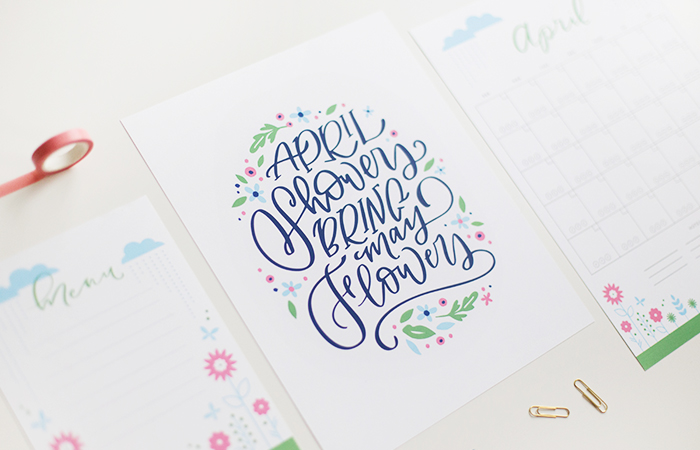 April
APRIL
Showers
BRING
may
Flowers
menu